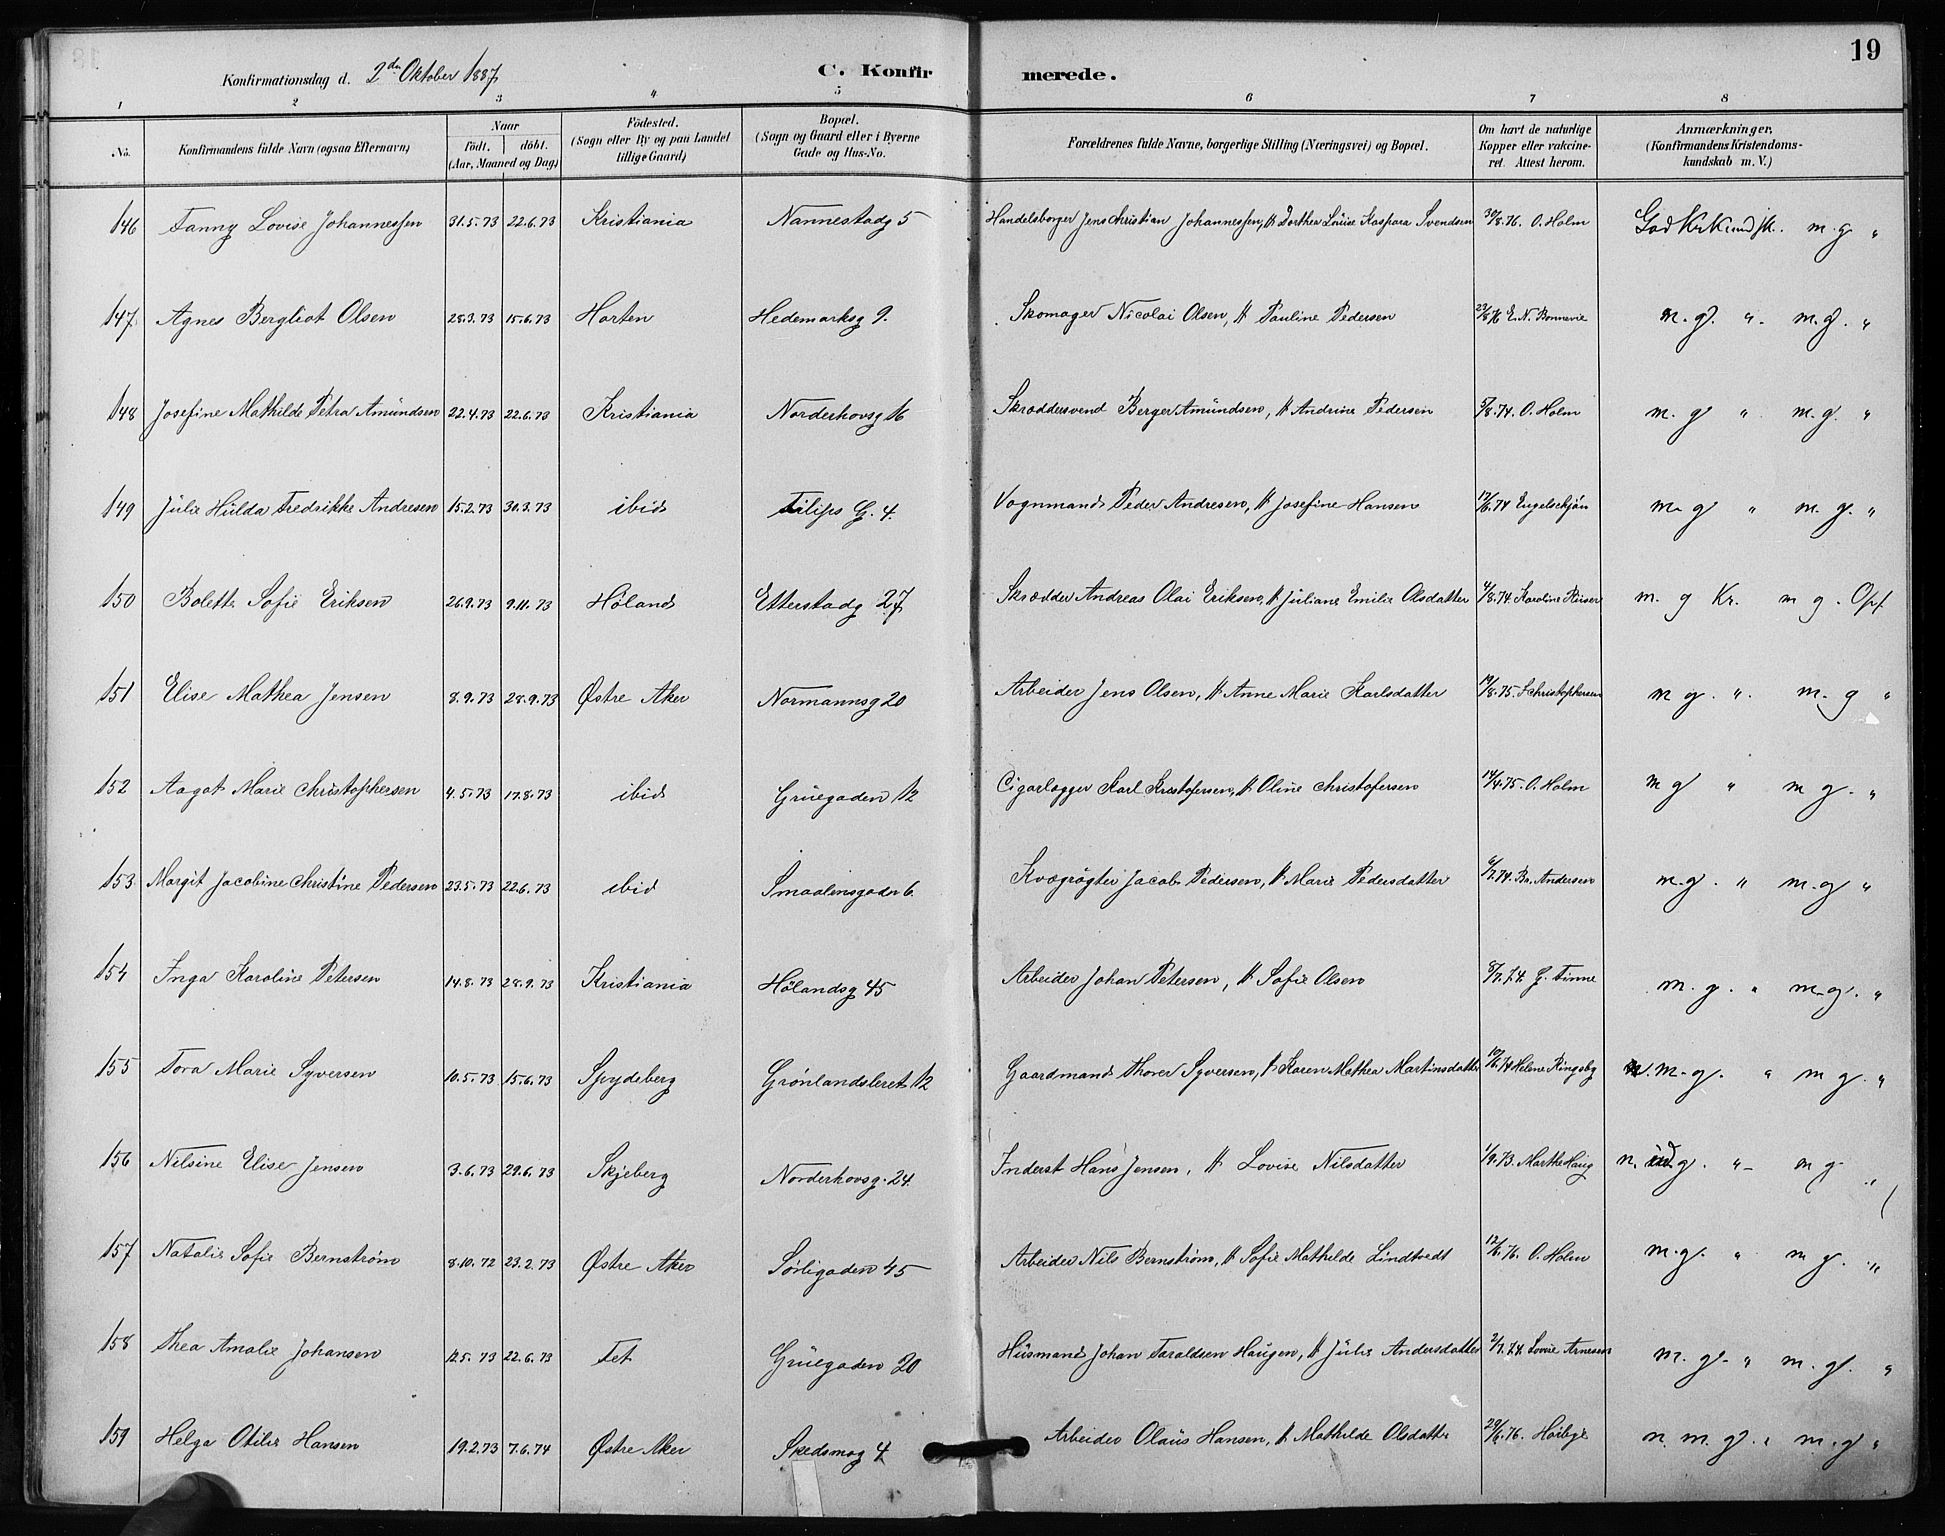 19
Konfirmationsdag d. 2den Oktober 1887 C. Konfirmerede.
1 2 3 4 5 6 7 8
No. Konfirmandens fulde Navn (ogsaa Efternavn) Naar Födt. döbt. (Aar, Maaned og Dag) Födested. (Sogn eller By og paa Landet tillige Gaard) Bopæl. (Sogn og Gaard eller i Byerne Gade og Hus-No. Forældrenes fulde Navne, borgerlige Stilling (Næringsvei) og Bopæl. Om havt de naturlige Kopper eller vakcineret. Attest herom. Anmærkninger, (Konfirmandens Kristendomskundskab m. V.)
146 Fanny Lovise Johannessen 31.5.73 22.6.73 Kristiania Nannestadg 5 Handelsborger Jens Christian Johannessen, & Dorthea Lovise Kaspara Svendsen 30/8.76. O. Holm God Kr.Kundsk. m.g. "
147 Agnes Bergliot Olsen 28.3.73 15.6.73 Horten Hedemarksg 9. Skomager Nicolai Olsen, & Pauline Pedersen 23/8 76 E.N. Bonnevie m.g. " m.g. "
148 Josefine Mathilde Petra Amundsen 22.4.73 22.6.73 Kristiania Norderhovsg 16 Skræddersvend Berger Amundsen, & Andrine Pedersen 5/8.74. O. Holm m.g " m.g. "
149 Julie Hulda Fredrikke Andresen 15.2.73 30.3.73 ibid Filips G. 4. Vognmand Peder Andresen, & Josefine Hansen 17/6.74 Engelschjøn m.g " m.g. "
150 Bolette Sofie Eriksen 26.9.73 9.11.73 Høland Etterstadg 27 Skrædder Andreas Olai Eriksen, & Juliane Emilie Olsdatter 4/8.74. Karoline m. g Kr. m g. Opf
151 Elise Mathea Jensen 8.9.73 28.9.73 Østre Aker Normannsg 20 Arbeider Jens Olsen, & Anne Marie Karlsdatter 19/8.75. Christophersen m g. " m. g "
152 Aagot Marie Christophersen 4.5.73 17.8.73 ibid Grüegaden 12 Cigarlægger Karl Kristofersen, & Oline Christofersen 14/4.75. O. Holm m g " m g. "
153 Margit Jacobine Christine Pedersen 23.5.73 22.6.73 ibid Smaalensgaden 6. Kvægrøgter Jacob Pedersen, & Marie Pedersdatter 6/7.74. Br. Andersen m.g. " m.g "
154 Inga Karoline Petersen 14.8.73 28.9.73 Kristiania Hølandsg 45 Arbeider Johan Petersen, & Sofie Olsen 8/7.74. G. Finne m.g. " m.g. "
155 Tora Marie Syversen 10.5.73 15.6.73 Spydeberg Grønlandsleret 12 Gaardmand Thorer Syversen, & Karen Mathea Martinsdatter 10/6.74 Helene Ringsby m.g. " m g. "
156 Nilsine Elise Jensen 3.6.73 29.6.73 Skjeberg Norderhovsg. 24. Inderst Hans Jensen, & Lovise Nilsdatter 1/9.73. Marthe Haug n. g. " m g "
157 Natalie Sofie Bernstrøm 8.10.72 23.2.73 Østre Aker Sørligaden 45 Arbeider Nils Bernstrøm, & Sofie Mathilde Lindtvedt 12/6.76. O. Holm m.g. " m g. "
158 Thea Amalie Johansen 12.5.73 22.6.73 Fet Grüegaden 20 Husmand Johan Taraldsen Haugen, & Julie Andersdatter 2/7.74. Lovise Arnesen m.g. " m.g. "
159 Helga Otilie Hansen 19.2.73 7.6.74 Østre Aker Skedsmog 4 Arbeider Olaus Hansen, & Mathilde Olsdatter 29/6.76. Høibye n. m.g. " m.g "